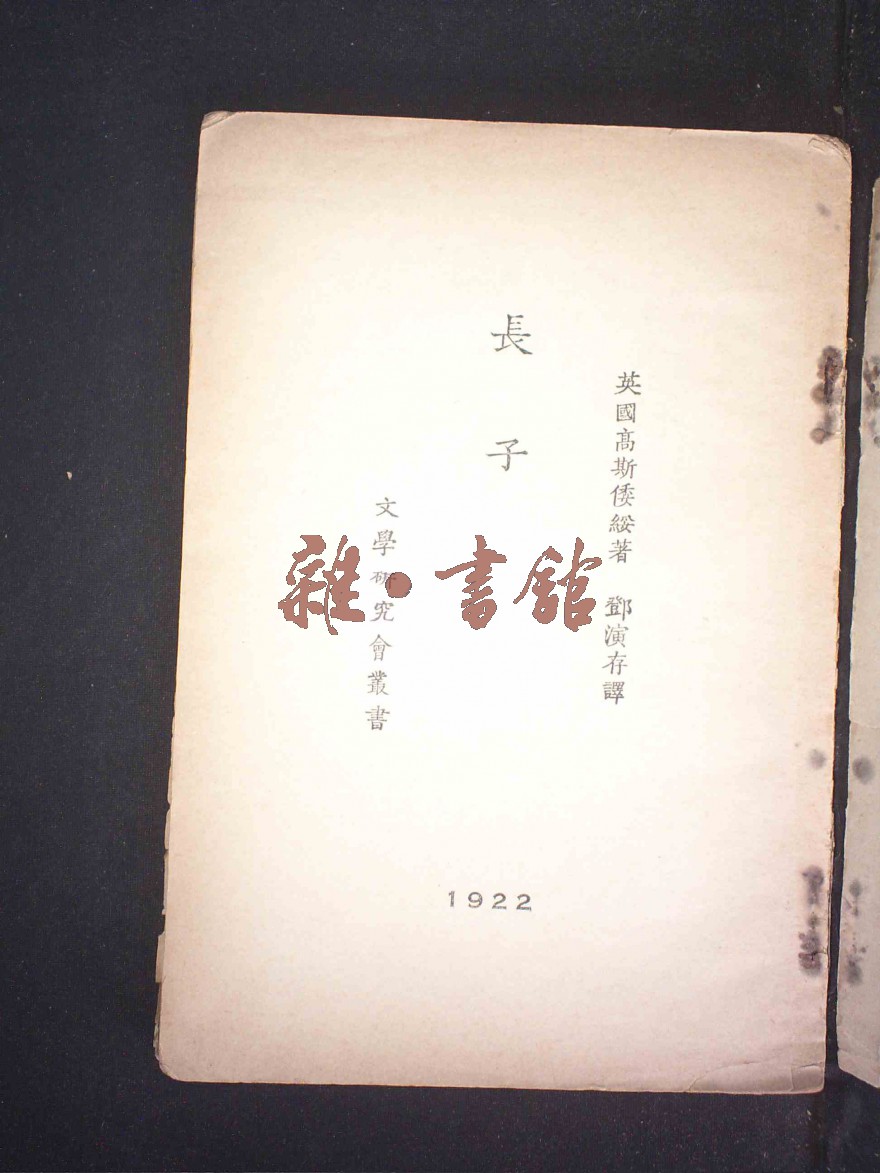 英國高斯倭綏著 鄧演存譯
長子
文學研究會叢書
1922
雜·書館